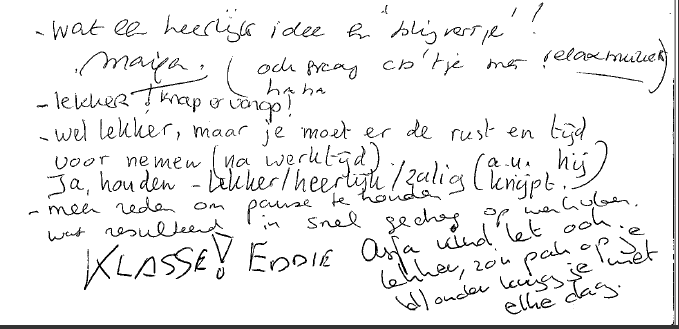 - wat een heerlijk idee en 'blijvertje'!
. Marja. (ook graag cd'tje met relaxmuziek)
haha
- lekker! knap er vanop!
- wel lekker, maar je moet er de rust en tijd
voor nemen (na werktijd).
Ja, houden - lekker/heerlijk/zalig (a.u. hij knijpt.)
- meer reden om pauze te houden
wat resulteert in snel gedrag op
KLASSE! EDDIE
vind het ook
lekker, zo'n pak op je
je niet
elke dag.